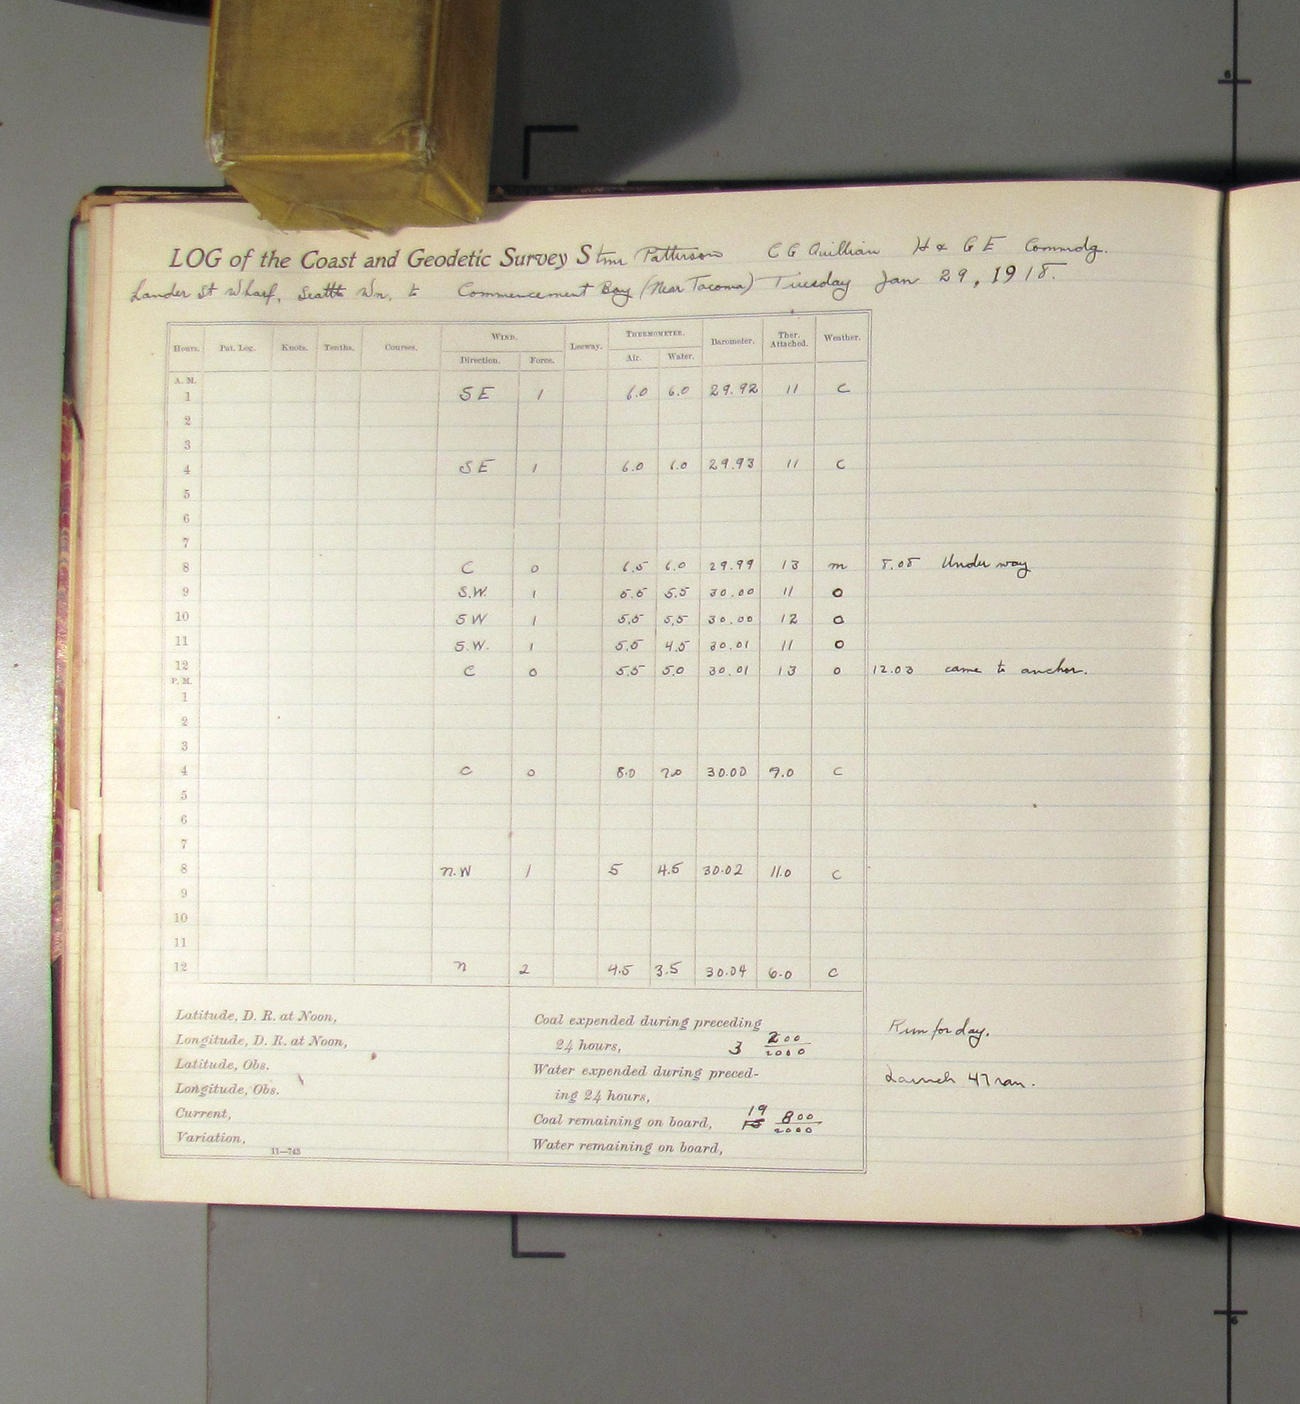 LOG of the Coast and Geodetic Survey Stmr Patterson C G Quillian H & G E Commdg.
Lander St Wharf, Seattle Wn, to Commencement Bay (Near Tacoma) Tuesday Jan 29, 1918.
Hours. Pat. Log. Knots. Tenths. Courses. WIND. Leeway. THERMOMETER. Barometer. Ther. Attached. Weather.
Direction. Force. Air. Water.
A. M.
1 SE 1 6.0 6.0 29.92 11 C
2
3
4 SE 1 6.0 6.0 29.93 11 C
5
6
7
8 C 0 6.5 6.0 29.99 13 m 8.08 Under way
9 S.W. 1 5.5 5.5 30.00 11 O
10 SW 1 5.5 5.5 30.00 12 O
11 S.W. 1 5.5 4.5 30.01 11 O
12 C 0 5.5 5.0 30.01 13 O 12.03 came to anchor.
P. M.
1
2
3
4 C 0 8.0 7.0 30.00 9.0 C
5
6
7
8 N.W 1 5 4.5 30.02 11.0 C
9
10
11
12 N 2 4.5 3.5 30.04 6.0 C
Latitude, D. R. at Noon, Coal expended during preceding
Longitude, D. R. at Noon, 24 hours, 3 200/2000 Run for day.
Latitude, Obs. Water expended during preced-
Longitude, Obs. ing 24 hours, Launch 47 nau.
Current, Coal remaining on board, 19 800/2000
Variation, Water remaining on board,
11—743
6
6